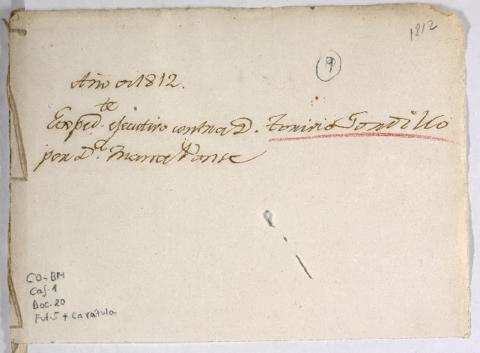 1812
9
Año de 1812.
Exped.te ejecutivo contra D. Toribio Gordillo
por D.a Maria Ponse
CO-BM
Caj-1
Doc-20
Fol-5 + Carátula